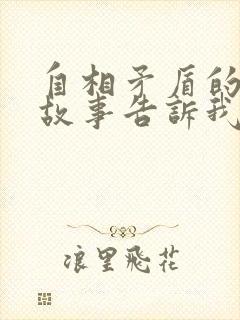 自相矛盾的
故事告訴我
浪里飛花